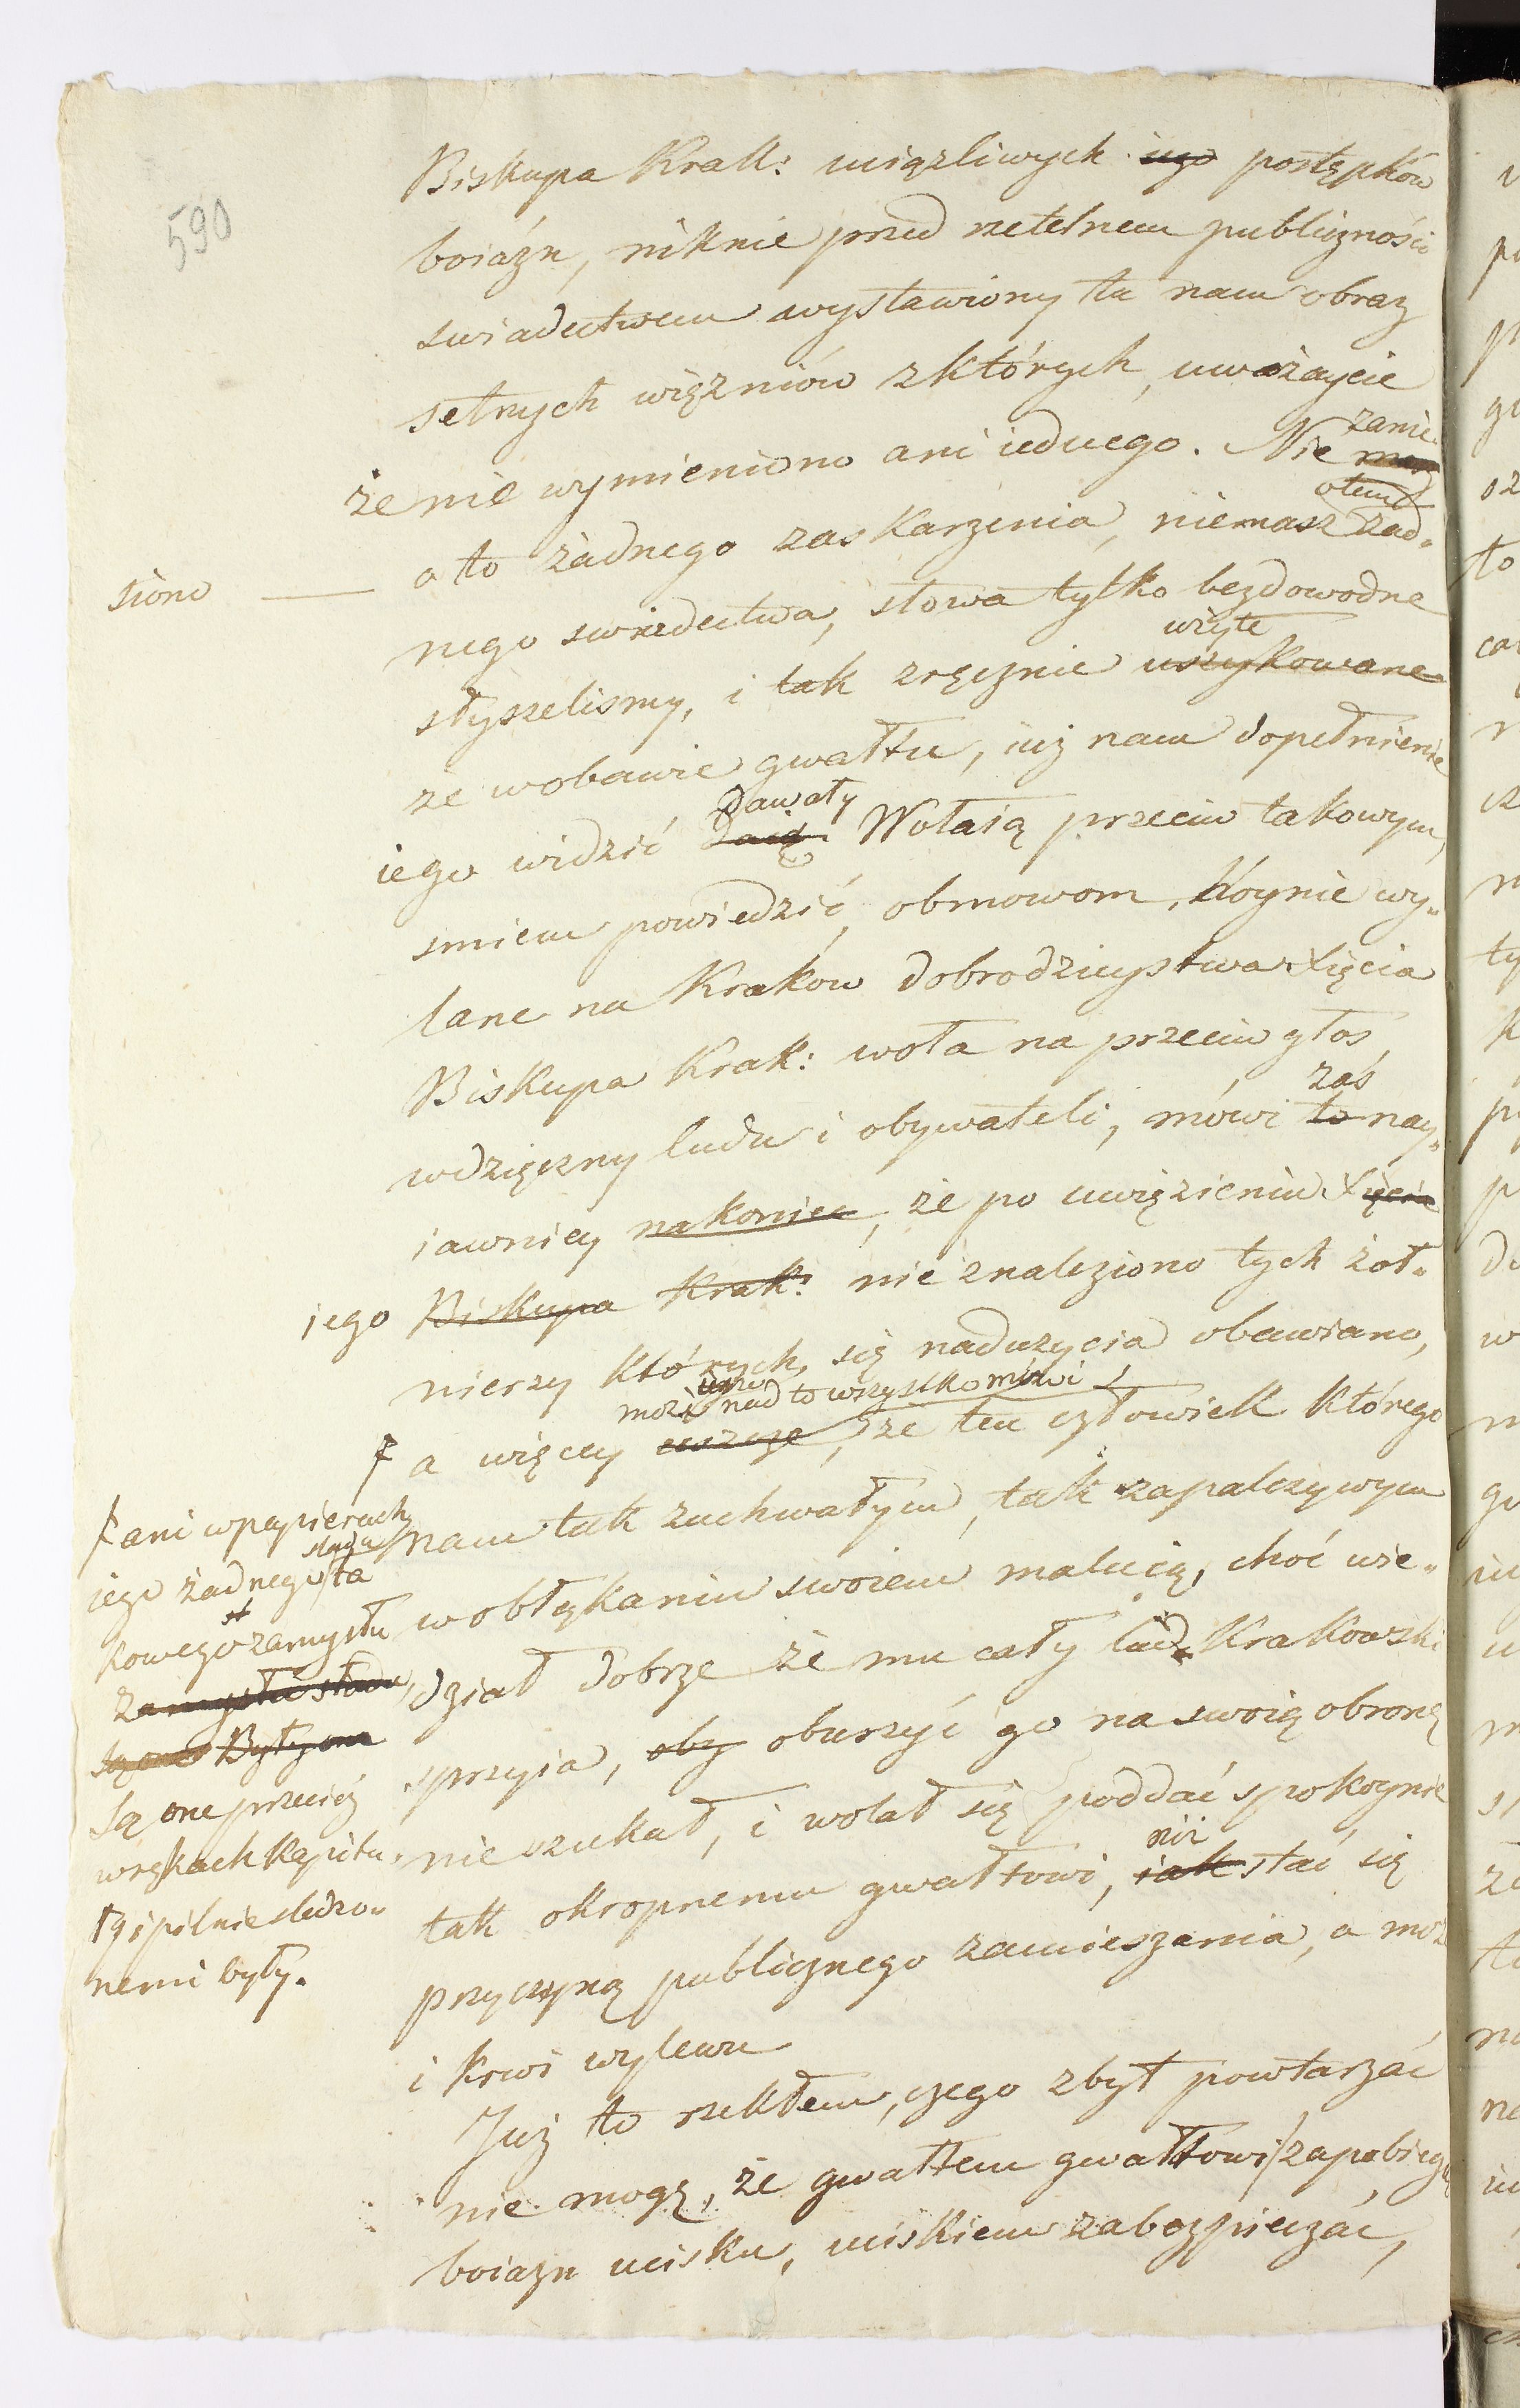 590
Biskupa Krak: uciążliwych iego postępków
boiaźn, niknie przed rzetelnem publiczności
swiadectwem wystawiony tu nam obraz
setnych więzniów z których, uważaycie
że nie wymieniono ani iednego. Nie zanie-
siono — o to żadnego zaskarżenia, niemasz o tem żad-
nego swiadectwa, słowa tylko bezdowodne
słyszelismy, i tak zręcznie uszykowane użyte
że w obawie gwałtu, iuż nam dopełnienie
iego widzić daią dawały Wołaią przeciw takowym,
smiem powiedzić, obmowom, hoynie wy-
lane na Kraków dobrodzieystwa Xięcia
Biskupa Krak: woła na przeciw głos
wdzięczny ludu i obywateli, mówi to zaś nay-
iawniey nakoniec, że po uwięzieniu Xięcia
jego Biskupa Krak: nie znaleziono tych żoł-
nierzy których się nadużycia obawiano,
moźe nad to wszystko mówi
ƚ a więcey ieszcze, że ten człowiek którego
nam tak zuchwałym, tak zapalczywym
w obłękaniu swoiem maluią, choć wie-
dział dobrze że mu cały lud Krakowski
sprzyia, aby oburzyć go na swoią obronę
nie szukał, i wolał się poddać spokoynie
tak okropnemu gwałtowi, iak niż stać się
przyczyną publicznego zamieszania, a moż
i krwi wylewu
Już to rzekłem, czego zbyt powtarzać
nie mogę, że gwałtem gwałtowi zapobiegać
boiazn ucisku, uciskiem zabezpieczać,
ƚ ani w papierach
jego żadnego śladu ta
kowego zamysłu
zamysłu śladu,
są one Były one
Są one przecież
w rękach Kapitu-
ły i pilnie śledzo-
nemi były.